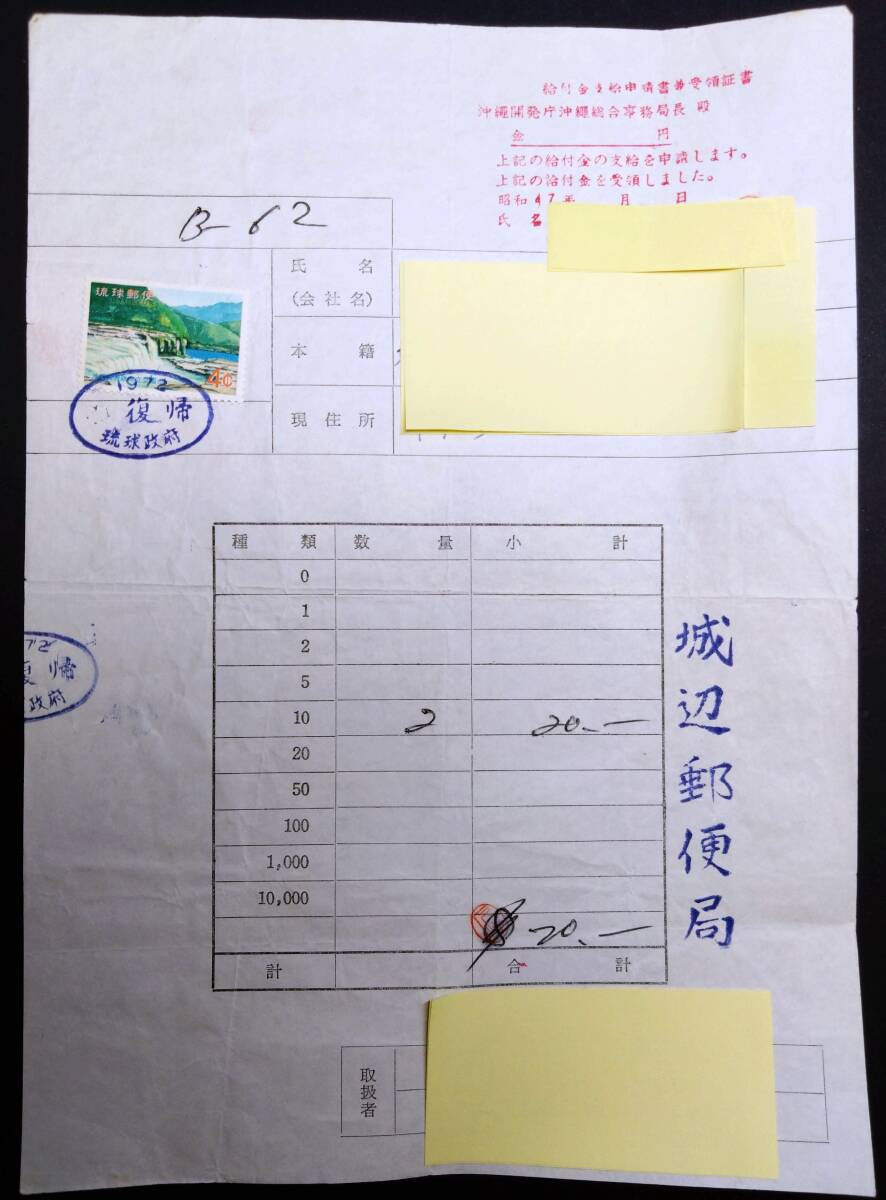 給付金支給申請書兼受領証書
沖縄開発庁沖縄総合事務局長 殿
金 円
上記の給付金の支給を申請します。
上記の給付金を受領しました。
昭和47年 月 日
氏 名
B-62
琉球郵便
4¢
1972
復帰
琉球政府
氏 名
(会社名)
本 籍
現 住 所
種 類 数 量 小 計
0
1
2
5
10 2 20.—
20
50
100
1,000
10,000
20.—
計 合 計
城辺郵便局
72
復帰
政府
取扱者